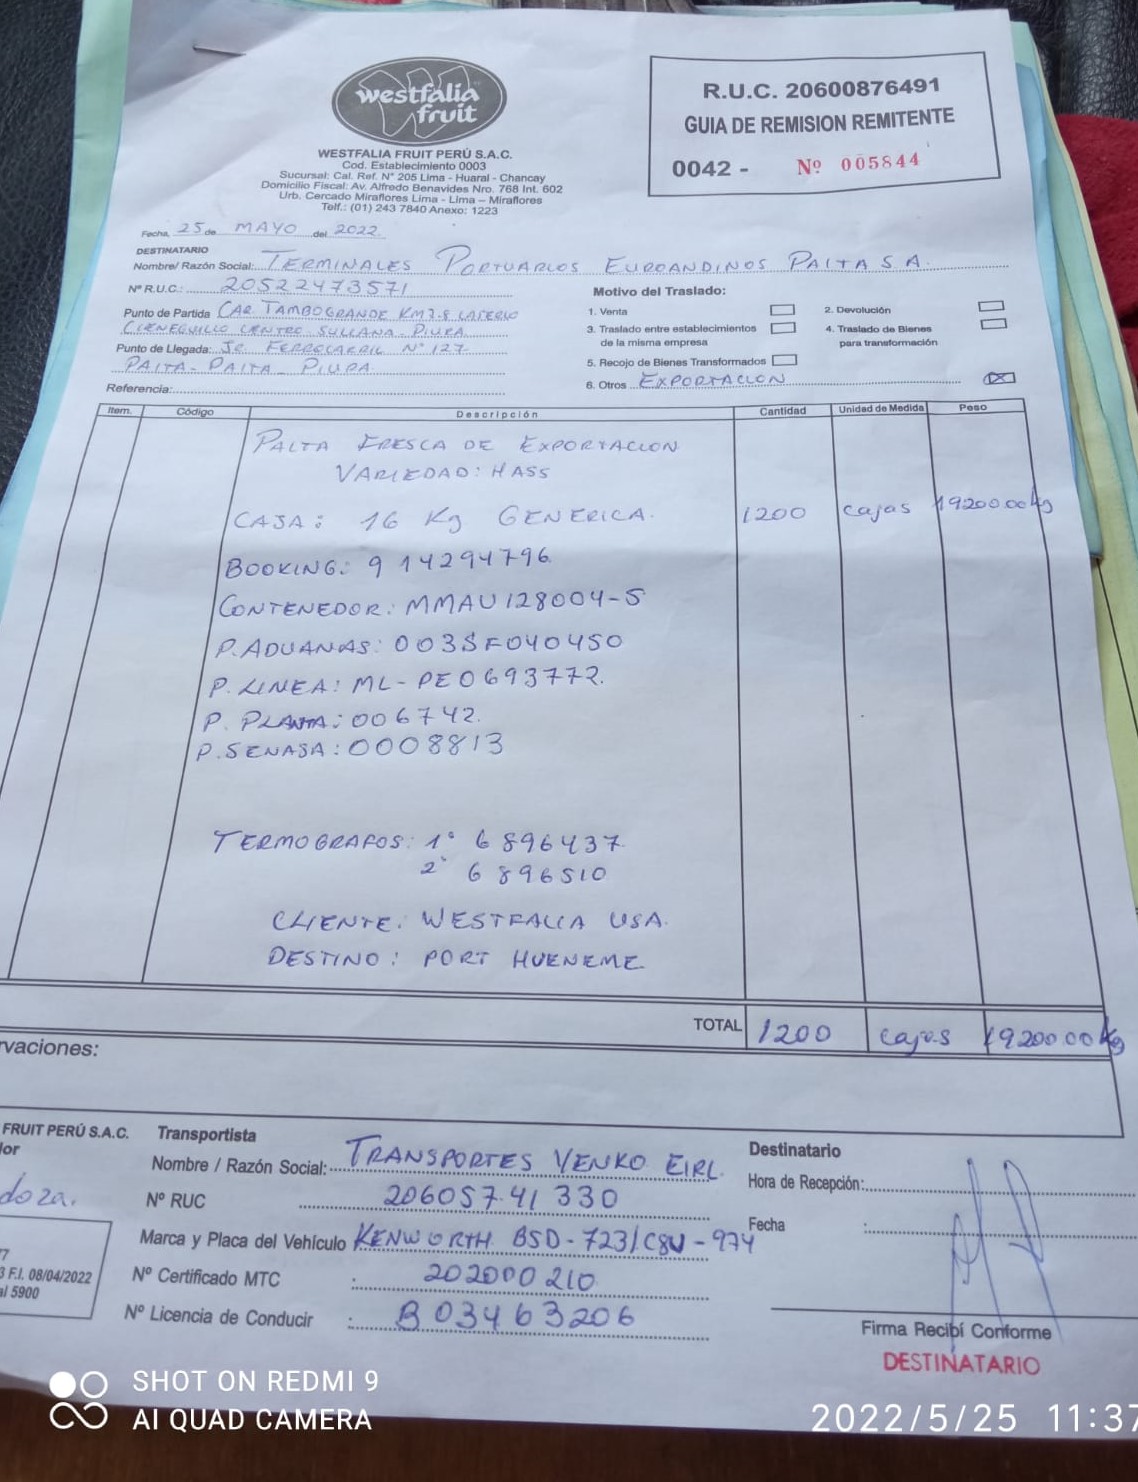 westfalia
fruit
WESTFALIA FRUIT PERÚ S.A.C.
Cod. Establecimiento 0003
Sucursal: Cal. Ref. N° 205 Lima - Huaral - Chancay
Domicilio Fiscal: Av. Alfredo Benavides Nro. 768 Int. 602
Urb. Cercado Miraflores Lima - Lima – Miraflores
Telf.: (01) 243 7840 Anexo: 1223
R.U.C. 20600876491
GUIA DE REMISION REMITENTE
0042 - Nº 005844
Fecha, 25 de MAYO del 2022
DESTINATARIO
Nombre/ Razón Social: TERMINALES PORTUARIOS EUROANDINOS PAITA S A.
Nº R.U.C.: 20522473571
Punto de Partida CAR TAMBOGRANDE KM 7.8 CASERIO
CIENEGUILLO CENTRO SULLANA - PIURA
Punto de Llegada: JR FERROCARRIL Nº 127
PAITA - PAITA - PIURA
Referencia:
Motivo del Traslado:
1. Venta
2. Devolución
3. Traslado entre establecimientos
de la misma empresa
4. Traslado de Bienes
para transformación
5. Recojo de Bienes Transformados
6. Otros EXPORTACION X
Item. Código Descripción Cantidad Unidad de Medida Peso
PALTA FRESCA DE EXPORTACION
VARIEDAD: HASS
CAJA: 16 Kg GENERICA. 1200 cajas 19200.00 kg
BOOKING: 914294796
CONTENEDOR: MMAU128004-5
P. ADUANAS: 003SF040450
P. LINEA: ML-PE0693772.
P. PLANTA: 006742.
P. SENASA: 0008813
TERMOGRAFOS: 1° 6896437
2° 6896510
CLIENTE: WESTFALIA USA.
DESTINO: PORT HUENEME
TOTAL 1200 cajas 19200.00 kg
rvaciones:
FRUIT PERÚ S.A.C.
doza.
3 F.I. 08/04/2022
al 5900
Transportista
Nombre / Razón Social: TRANSPORTES VENKO EIRL.
Nº RUC 20605741330
Marca y Placa del Vehículo KENWORTH BSD-723/C8U-974
Nº Certificado MTC : 202000210
Nº Licencia de Conducir : B03463206
Destinatario
Hora de Recepción:
Fecha :
Firma Recibí Conforme
DESTINATARIO
SHOT ON REDMI 9
AI QUAD CAMERA
2022/5/25 11:37